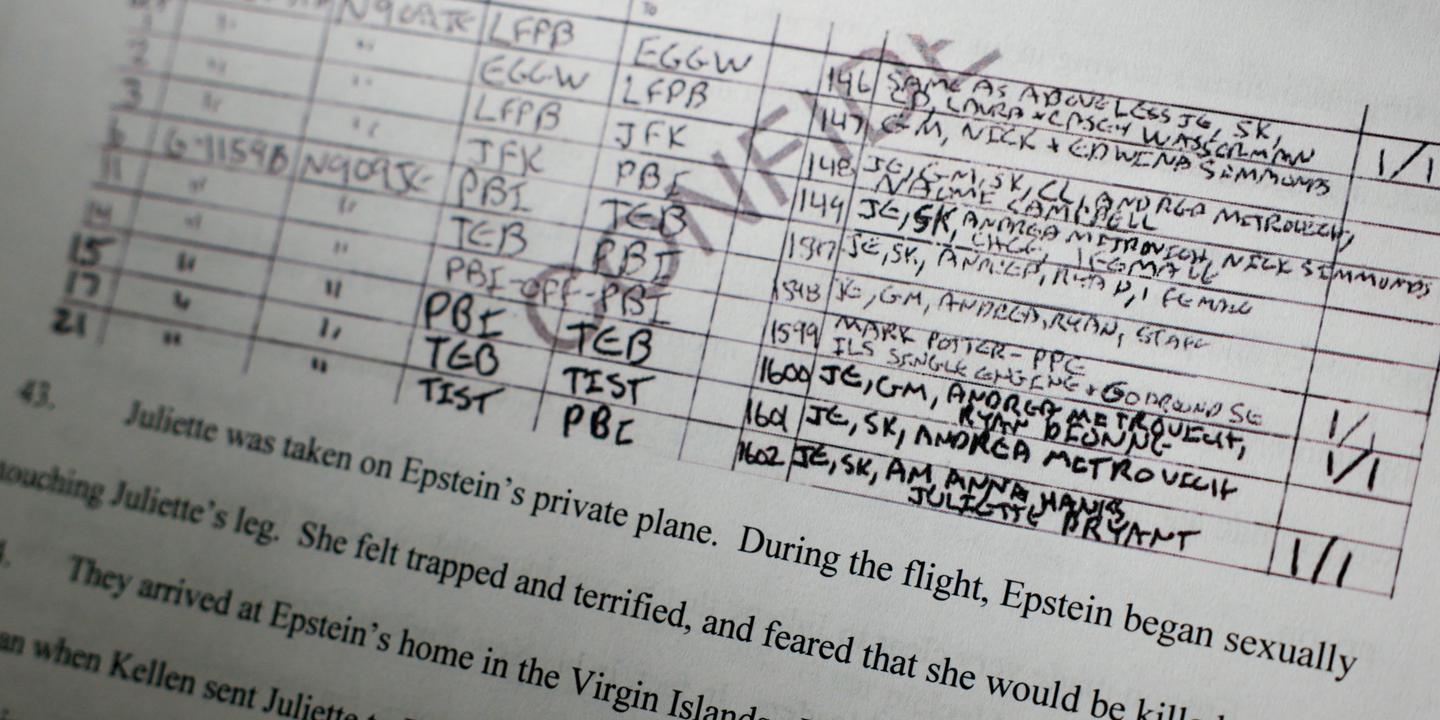 1 " " N909JE LFPB EGGW 146 SAME AS ABOVE LESS JE, SK,
CB, LAURA + CASEY WASSERMAN
2 " " EGGW LFPB 147 GM, NICK + EDWINA SIMMONDS 1/1
3 " " LFPB JFK 148 JE, GM, SK, CL, ANDREA METROVICH,
NAOME CAMPBELL
6 G-1159B N909JE JFK PBI 149 JE, SK, ANDREA MITROVICH, NICK SIMMONDS
11 " " PBI TEB JE, SK, ANDREA, 1 FEMALE
14 " " TEB PBI JE, GM, ANDREA, RYAN, STAFF
15 " " PBI-OFF-PBI 1599 MARK POTTER - PPC
ILS SINGLE ENGINE + GO AROUND SE
17 " " PBI TEB 1600 JE, GM, ANDREA METROVICH, 1/1
RYAN DIONNE
21 " " TEB TIST 1601 JE, SK, ANDREA METROVICH 1/1
TIST PBI 1602 JE, SK, AM, ANNA
JULIETTE BRYANT 1/1
CONFIDE
43. Juliette was taken on Epstein's private plane. During the flight, Epstein began sexually
touching Juliette's leg. She felt trapped and terrified, and feared that she would be killed
They arrived at Epstein's home in the Virgin Islands.
when Kellen sent Juliette